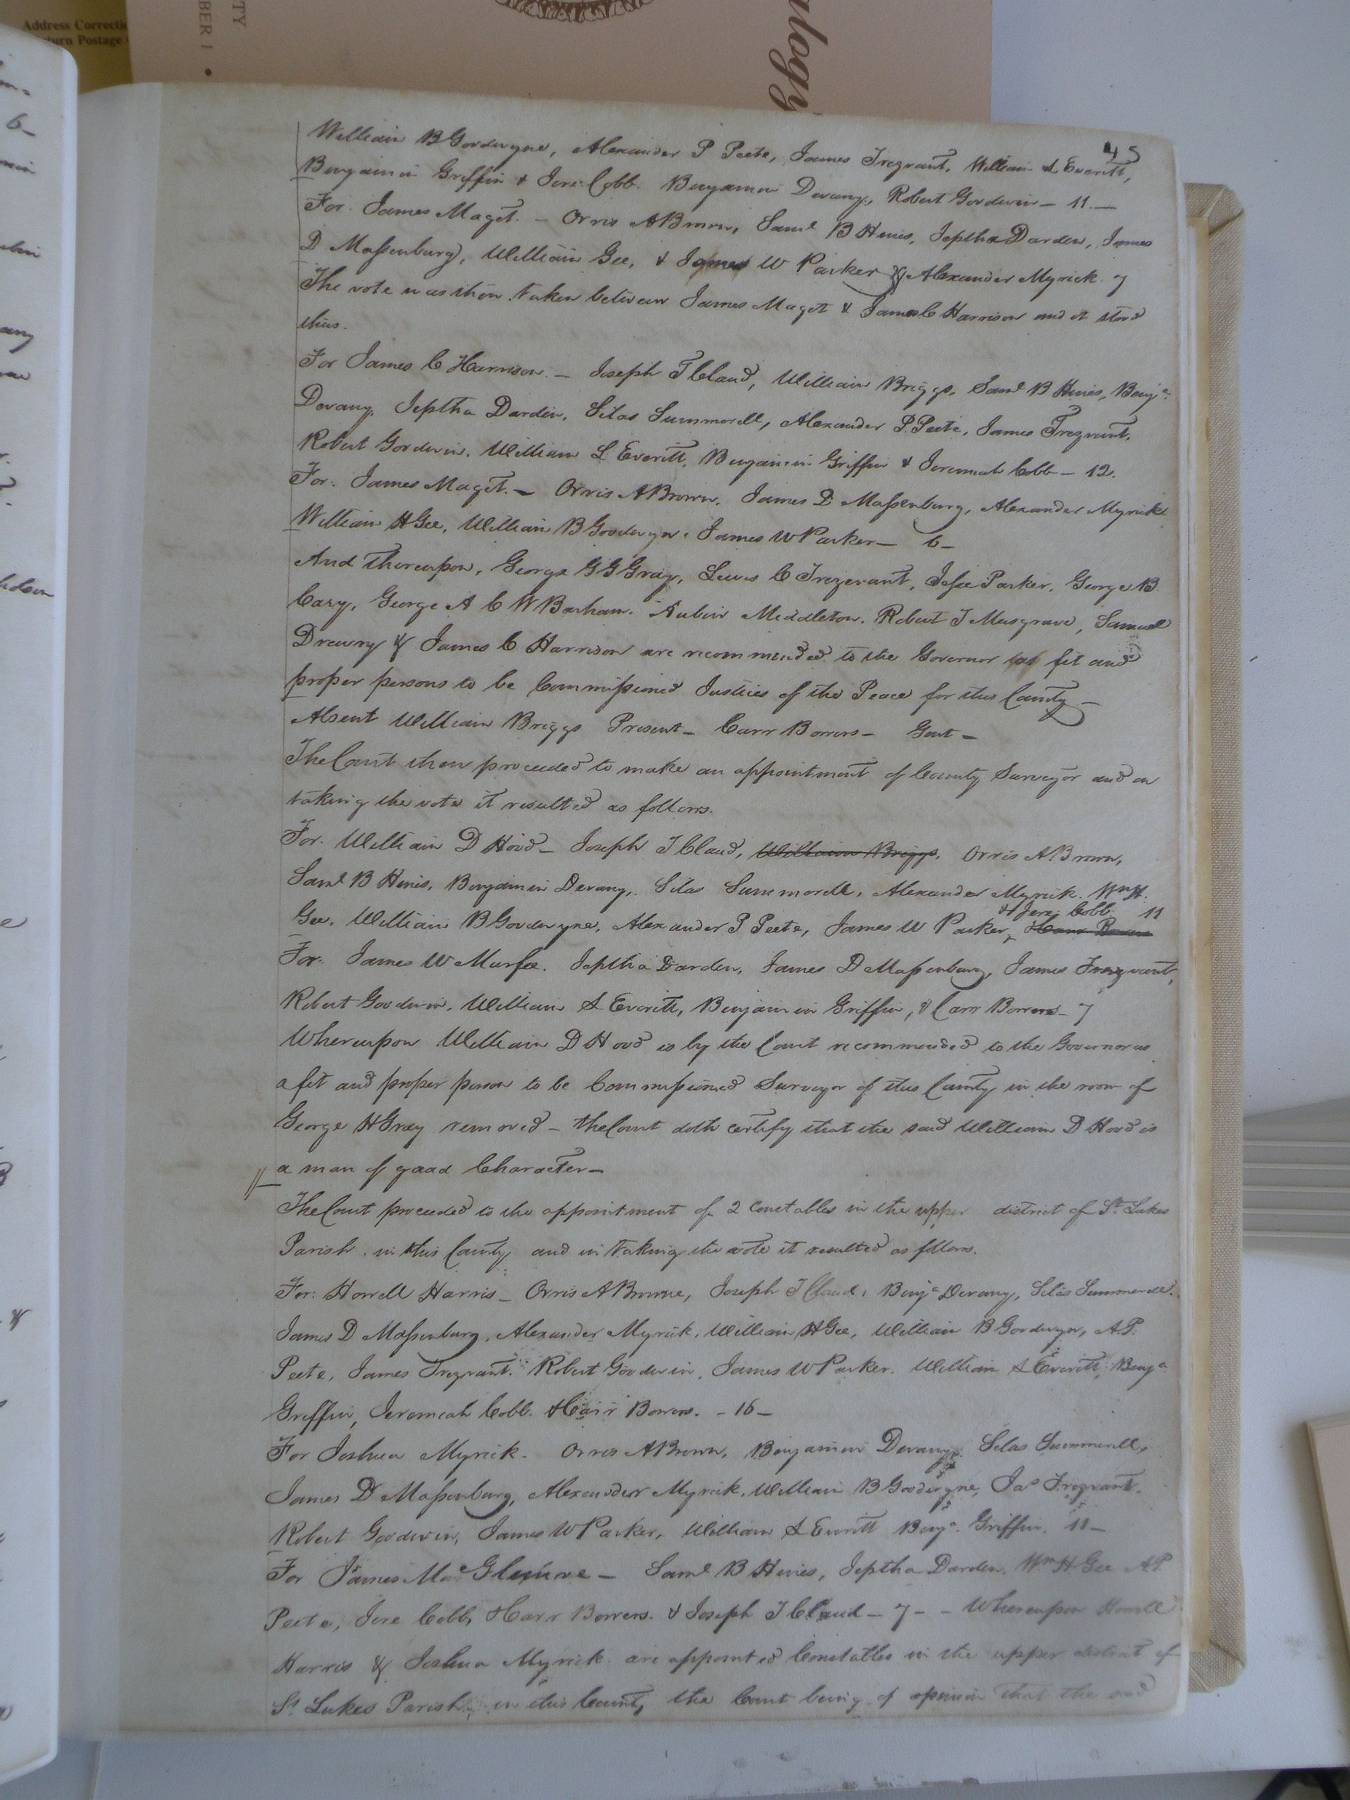 Address Correctio
turn Postage
TY
BER 1 •
ulogy
45
William B Goodwyne, Alexander P Peete, James Trezvant, William L Everitt,
Benjamin Griffin & Jere: Cobb. Benjamin Devany, Robert Goodwin — 11. —
For. James Maget. — Orris A Brown, Saml B Hines, Jeptha Darden, James
D Massenburg, William Gee, & James W Parker & Alexander Myrick. 7
The vote was then taken between James Maget & James C Harrison and it stood
thus.
For James C Harrison. — Joseph T Claud, William Briggs, Saml B Hines, Benja
Devany, Jeptha Darden, Silas Summerell, Alexander P. Peete, James Trezvant,
Robert Goodwin, William L Everitt, Benjamin Griffin & Jeremiah Cobb — 12.
For. James Maget. — Orris A Brown, James D Massenburg, Alexander Myrick
William H Gee, William B Goodwyn, James W Parker — 6 —
And thereupon, George G G Gray, Lewis C Trezevant, Jesse Parker, George B
Cary, George A C W Barham, Aubin Middleton, Robert T Musgrave, Samuel
Drewry & James C Harrison are recommended to the Governor as fit and
proper persons to be Commissioned Justices of the Peace for this County —
Absent William Briggs Present — Carr Bowers — Gent —
The Court then proceeded to make an appointment of County Surveyor and on
taking the vote it resulted as follows.
For. William D Hood — Joseph T Claud, William Briggs, Orris A Brown,
Saml B Hines, Benjamin Devany, Silas Summerell, Alexander Myrick, Wm H.
Gee, William B Goodwyne, Alexander P Peete, James W Parker, & Jere: Cobb 11
For. James W Murfee. Jeptha Darden, James D Massenburg, James Trezvant,
Robert Goodwin, William L Everitt, Benjamin Griffin, & Carr Bowers — 7
Whereupon William D Hood is by the Court recommended to the Governor as
a fit and proper person to be Commissioned Surveyor of this County in the room of
George H Gray removed — the Court doth certify that the said William D Hood is
a man of good Character —
The Court proceeded to the appointment of 2 Constables in the upper district of St Lukes
Parish in this County and in taking the vote it resulted as follows.
For: Howell Harris — Orris A Browne, Joseph T Claud, Benja Devany, Silas Summerell,
James D Massenburg, Alexander Myrick, William H Gee, William B Goodwyn, A P.
Peete, James Trezvant, Robert Goodwin, James W Parker, William L Everitt, Benja
Griffin, Jeremiah Cobb & Carr Bowers. — 16 —
For Joshua Myrick. Orris A Brown, Benjamin Devany, Silas Summerell,
James D Massenburg, Alexander Myrick, William B Goodwyne, Jas Trezvant,
Robert Goodwin, James W Parker, William L Everitt Benja Griffin. 11 —
For James — Saml B Hines, Jeptha Darden, Wm H Gee A P
Peete, Jere Cobb, Carr Bowers. & Joseph T Claud — 7 — Whereupon Howell
Harris & Joshua Myrick are appointed Constables in the upper district of
St Lukes Parish, in this County, the Court being of opinion that the said